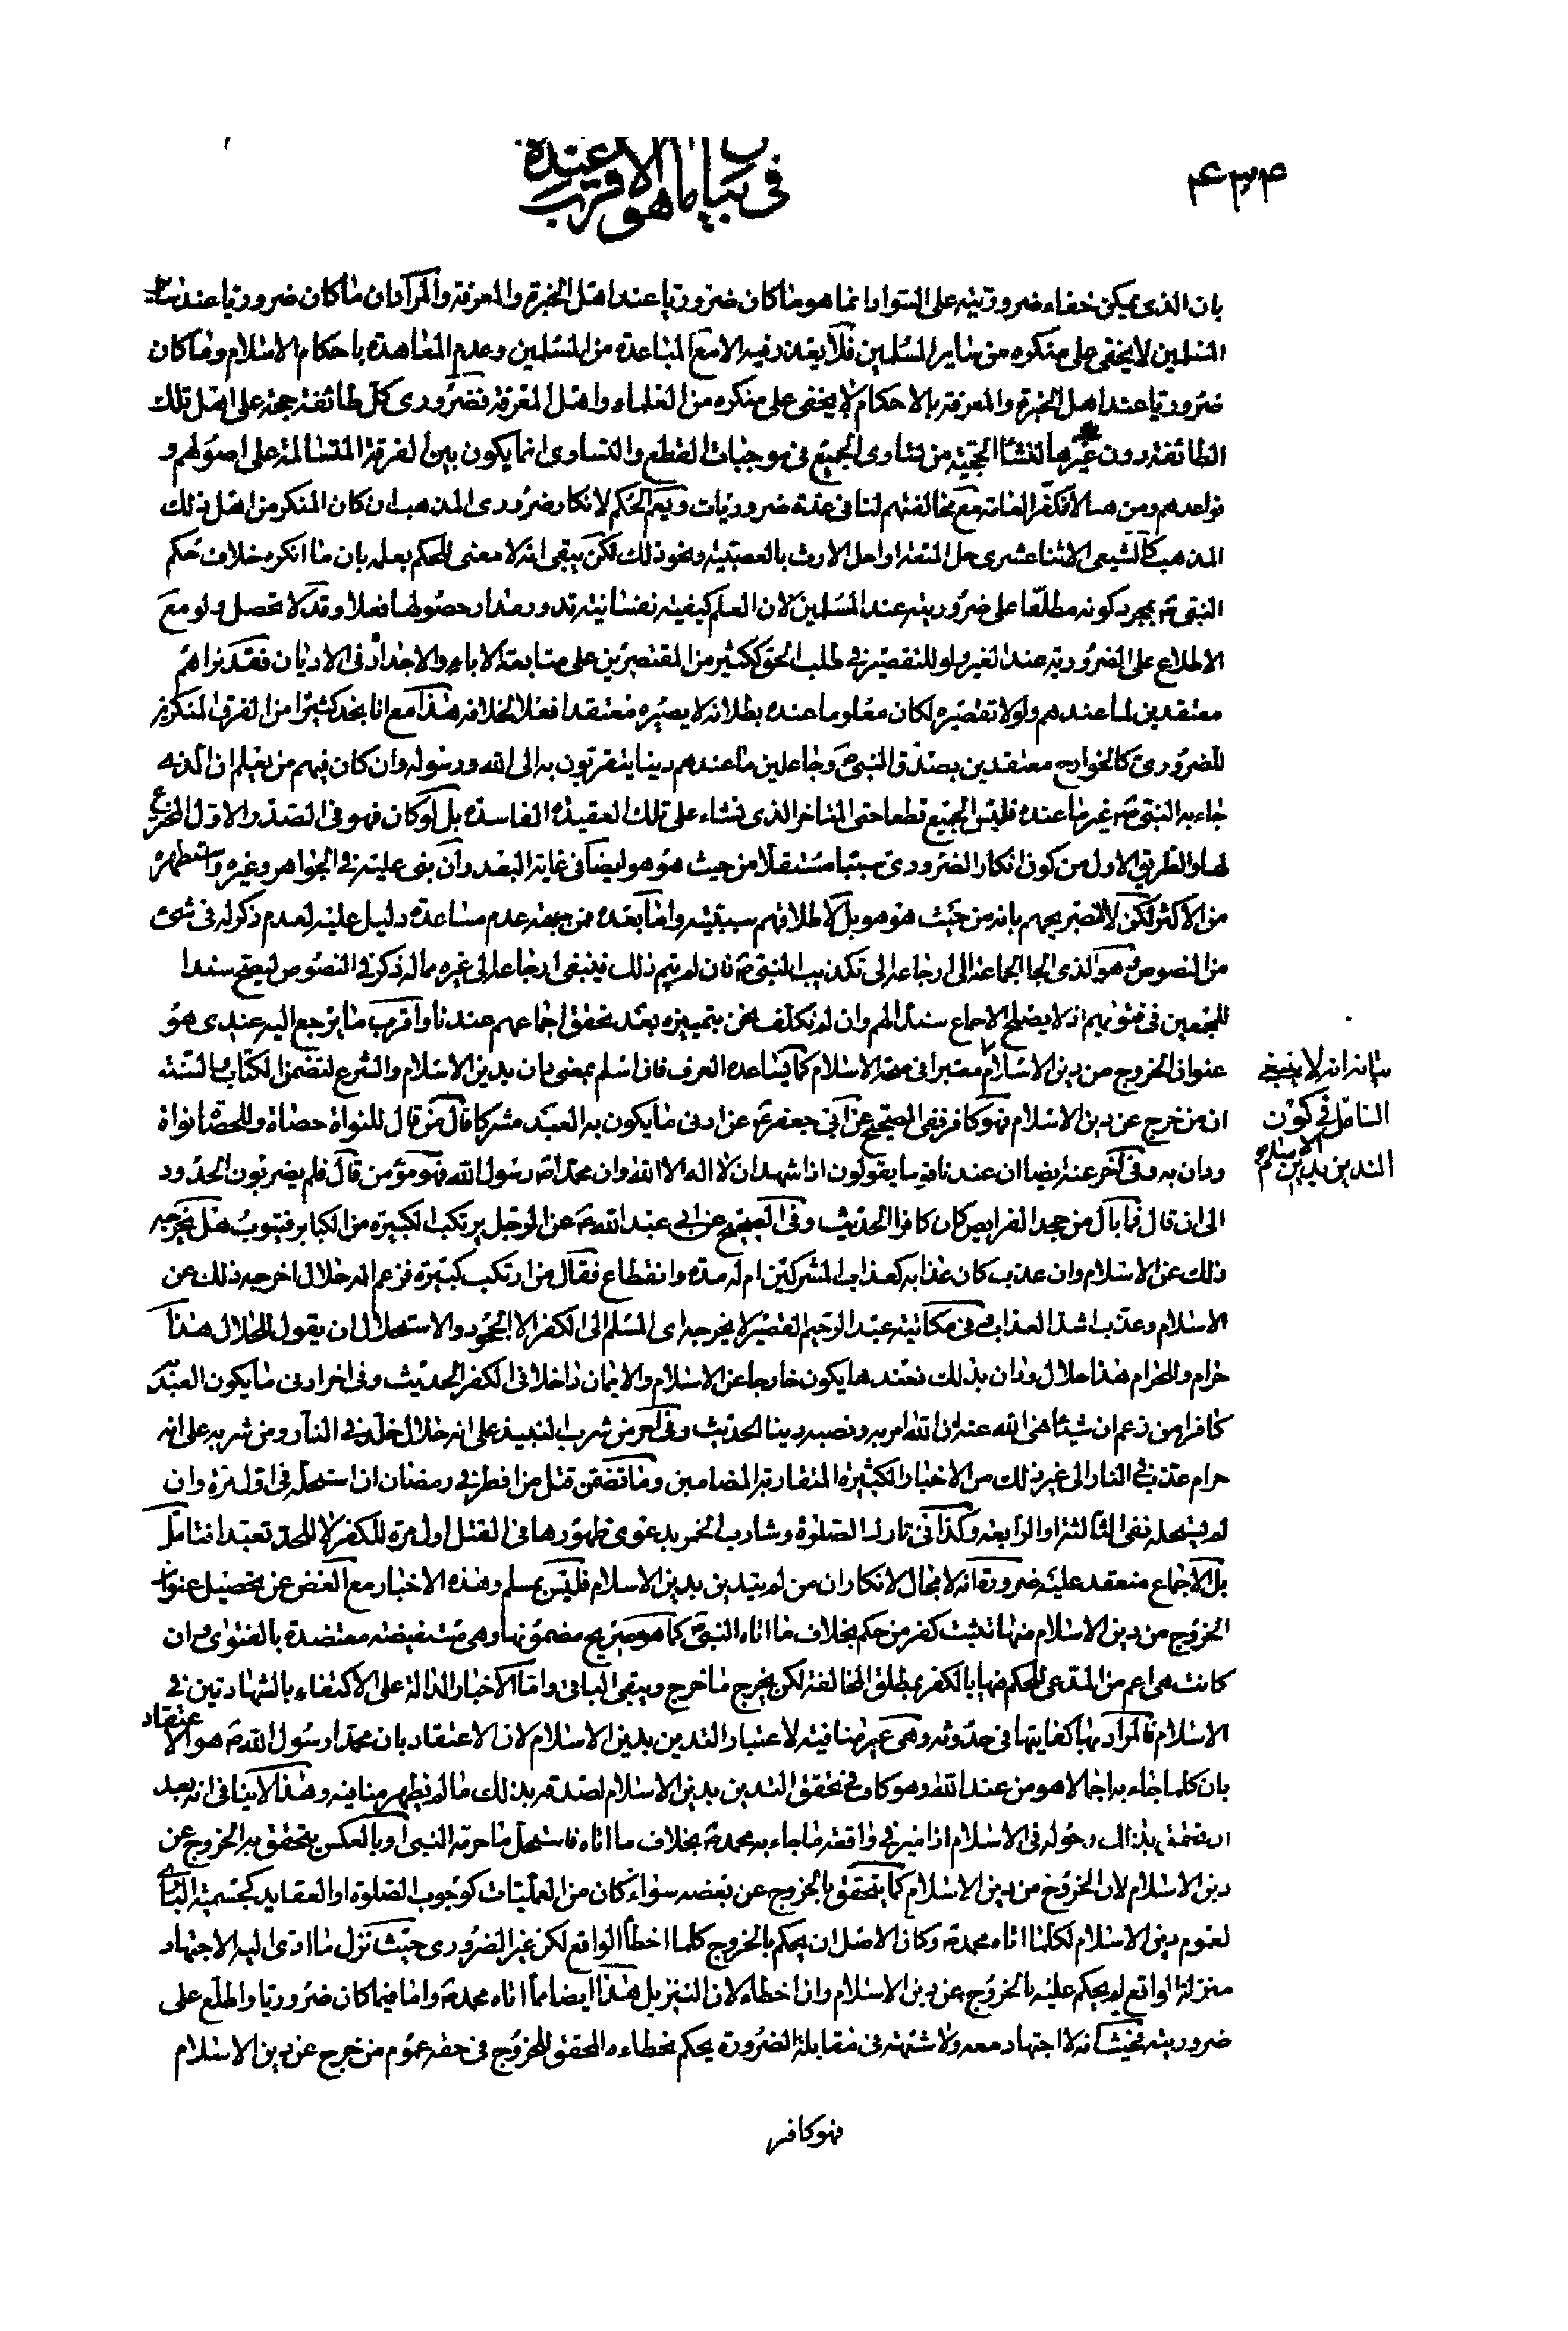 ۴۳۴
في بيان ما هو الاقرب عنده
بان الذى يمكن خفاء ضروريته على السواد انما هو ما كان ضروريا عند اهل الخبرة والمعرفة والمراد ان ما كان ضروريا عند
المسلمين لا يخفى على منكره من ساير المسلمين فلا يعذر فيه الا مع المباعدة من المسلمين وعدم المعاهدة باحكام الاسلام وما كان
ضروريا عند اهل الخبرة والمعرفة بالاحكام لا يخفى على منكره من العلماء واهل المعرفة فضرورى كل طائفة حجة على اهل تلك
الطائفة دون غيرها لنشأ الحجية من تساوى الجميع في موجبات القطع والتساوى انما يكون بين الفرقة المتسالمة على اصولهم و
قواعدهم ومن هنا لا نكفر العامة مع مخالفتهم لنا في عدة ضروريات ويعم الحكم لانكار ضرورى المذهب ان كان المنكر من اهل ذلك
المذهب كالشيعى الاثنا عشرى حل المتعة او احل الارث بالعصبية ونحو ذلك لكن يبقى انه لا معنى للحكم بعلمه بان ما انكره خلاف حكم
النبى ص بمجرد كونه مطلعا على ضروريته عند المسلمين لان العلم كيفية نفسانية تدور مدار حصولها فعلا وقد لا تحصل ولو مع
الاطلاع على الضرورية عند الغير ولو للتقصير في طلب الحق ككثير من المقتصرين على متابعة الاباء والاجداد في الاديان فقد نراهم
معتقدين لما عندهم ولولا تقصيره لكان معلوما عنده بطلانه لا يصيره معتقدا فعلا لخلافه هذا مع انا نجد كثيرا من الفرق المنكرين
للضرورى كالخوارج معتقدين بصدق النبى ص وجاعلين ما عندهم دينا يتقربون به الى الله ورسوله وان كان فيهم من يعلم ان الذى
جاء به النبى ص غير ما عنده فليس الجميع قطعا حتى المتاخر الذى نشاء على تلك العقيدة الفاسدة بل لو كان فهو في الصدر الاول المخترع
لها والطريق الاول من كون انكار الضرورى سببا مستقلا من حيث هو هو ايضا في غاية البعد وان بنى عليه في الجواهر وغيره واستظهره
من الاكثر لكن لا لتصريحهم بانه من حيث هو هو بل لاطلاقهم سببيته وانما بعده من جهة عدم مساعدة دليل عليه لعدم ذكر له في شئ
من النصوص وهو الذى الجا الجماعة الى ارجاعه الى تكذيب النبى ص فان لم يتم ذلك فينبغى ارجاعه الى غيره مما له ذكر في النصوص ليصح سندا
للمجمعين في فتويهم اذ لا يصلح الاجماع سندا لهم وان لم نكلف نحن بتمييزه بعد تحقق اجماعهم عندنا واقرب ما يرجع اليه عندى هو
عنوان الخروج من دين الاسلام معتبرا في حقه الاسلام كما يساعده العرف فان اسلم بمعنى دان بدين الاسلام والشرع لتضمن الكتاب والسنة
ان من خرج عن دين الاسلام فهو كافر ففى الصحيح عن ابى جعفر ع عن ادنى ما يكون به العبد مشركا قال من قال للنواة حصاة وللحصاة نواة
ودان به وفى آخر عنه ايضا ان عندنا قوما يقولون اذا شهد ان لا اله الا الله وان محمدا ص رسول الله فهو مؤمن قال فلم يضربون الحدود
الى ان قال فما بال من جحد الفرايض كان كافرا الحديث وفى الصحيح عن ابى عبد الله ع عن الرجل يرتكب الكبيرة من الكبائر فيموت هل يخرجه
ذلك عن الاسلام وان عذب كان عذابه كعذاب المشركين ام له مدة وانقطاع فقال من ارتكب كبيرة فزعم انه حلال اخرجه ذلك عن
الاسلام وعذب اشد العذاب وفى مكاتبة عبد الرحيم القصير لا يخرجه اى المسلم الى الكفر الا الجحود والاستحلال ان يقول للحلال هذا
حرام وللحرام هذا حلال ودان بذلك فعندها يكون خارجا عن الاسلام والايمان داخلا في الكفر الحديث وفى اخر ادنى ما يكون العبد به
كافرا من زعم ان شيئا نهى الله عنه ان الله امر به ونصبه دينا الحديث وفى آخر من شرب النبيذ على انه حلال خلد في النار ومن شربه على انه
حرام عذب في النار الى غير ذلك من الاخبار الكثيرة المتقاربة المضامين وما تضمن قتل من افطر في رمضان ان استحله في اول مرة وان
لم يستحله ففى الثالثة او الرابعة وكذا في تارك الصلوة وشارب الخمر بدعوى ظهورها في القتل اول مرة للكفر لا للحد تعبدا فتامل
بل الاجماع منعقد عليه ضرورة انه لا مجال لانكار ان من لم يتدين بدين الاسلام فليس بمسلم وهذه الاخبار مع الغض عن تحصيل عنوان
الخروج من دين الاسلام منها تثبت كفر من حكم بخلاف ما اتاه النبى ص كما هو صريح مضمونها وهى مستفيضة معتضدة بالفتوى وان
كانت هى اعم من المدعى للحكم فيها بالكفر بمطلق المخالفة لكن يخرج ما خرج ويبقى الباقى واما الاخبار الدالة على الاكتفاء بالشهادتين في
الاسلام فالمراد منها كفايتها في حدوثه وهى غير منافية لاعتبار التدين بدين الاسلام لان الاعتقاد بان محمدا رسول الله ص هو الاعتقاد
بان كلما جاء به اجمالا هو من عند الله وهو كاف في تحقق التدين بدين الاسلام لصدقه بذلك ما لم يظهر منافيه وهذا لا ينافى انه بعد
ان تحقق بذلك دخوله في الاسلام اذا ميز في واقعة ما جاء به محمد ص بخلاف ما اتاه فاستحل ما حرمه النبى او بالعكس يتحقق به الخروج عن
دين الاسلام لان الخروج من دين الاسلام كما يتحقق بالخروج عن بعضه سواء كان من العمليات كوجوب الصلوة او العقايد كجسمية البارى
لعموم دين الاسلام لكلما اتاه محمد ص وكان الاصل ان يحكم بالخروج كلما اخطأ الواقع لكن غير الضرورى حيث نزل ما ادى اليه الاجتهاد
منزلة الواقع لم يحكم عليه بالخروج عن دين الاسلام وان اخطاء لان التنزيل هذا ايضا مما اتاه محمد ص واما فيما كان ضروريا واطلع على
ضروريته فحيث انه لا اجتهاد معه ولا شبهة في مقابلة الضرورة يحكم بخطاءه المحقق للخروج في حقه عموم من خرج عن دين الاسلام
فهو كافر
بيان انه لا ينبغي
التامل في كون
التدين بدين الاسلام